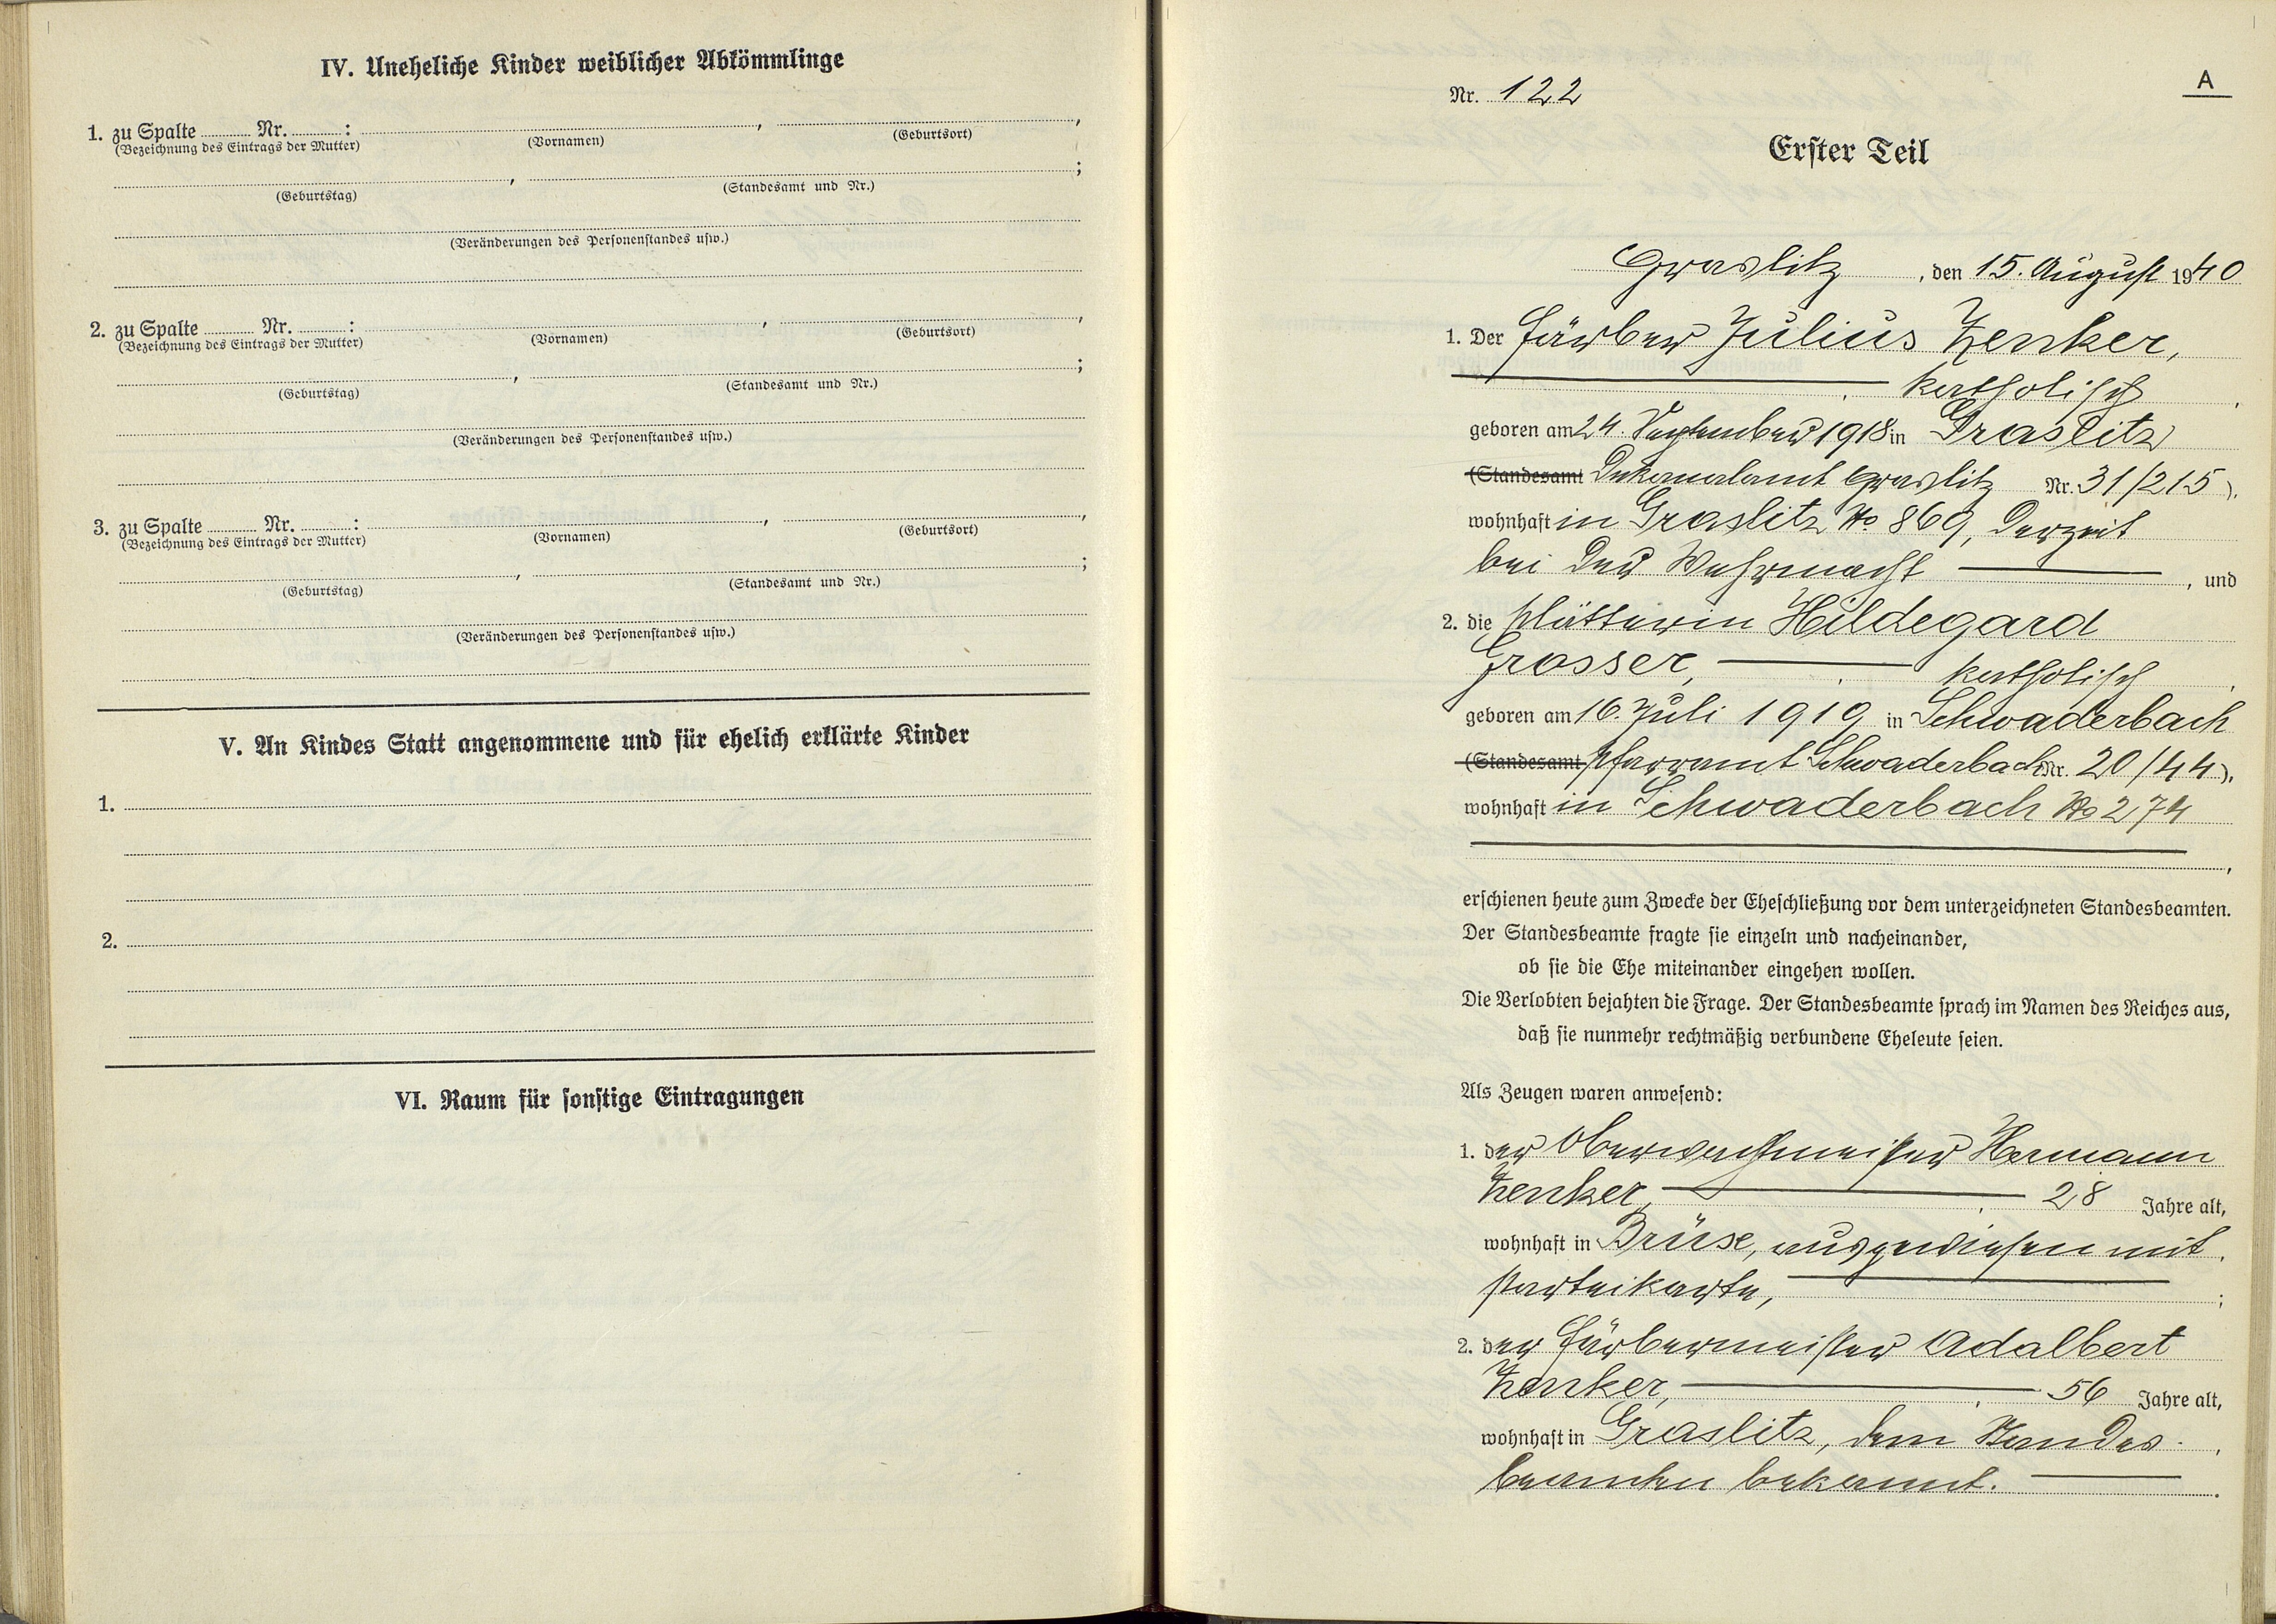 IV. Uneheliche Kinder weiblicher Abkömmlinge
1. zu Spalte ........ Nr. ........ : ........ , ........ ,
(Bezeichnung des Eintrags der Mutter) (Vornamen) (Geburtsort)
........ , ........ ;
(Geburtstag) (Standesamt und Nr.)
(Veränderungen des Personenstandes usw.)
2. zu Spalte ........ Nr. ........ : ........ , ........ ,
(Bezeichnung des Eintrags der Mutter) (Vornamen) (Geburtsort)
........ , ........ ;
(Geburtstag) (Standesamt und Nr.)
(Veränderungen des Personenstandes usw.)
3. zu Spalte ........ Nr. ........ : ........ , ........ ,
(Bezeichnung des Eintrags der Mutter) (Vornamen) (Geburtsort)
........ , ........ ;
(Geburtstag) (Standesamt und Nr.)
(Veränderungen des Personenstandes usw.)
V. An Kindes Statt angenommene und für ehelich erklärte Kinder
1.
2.
VI. Raum für sonstige Eintragungen
A
Nr. 122
Erster Teil
Graslitz , den 15. August 1940
1. Der Färber Julius Zenker,
katholisch ,
geboren am 24. September 1918 in Graslitz
(Standesamt Dekanalamt Graslitz Nr. 31/215),
wohnhaft in Graslitz No 869, derzeit
bei der Wehrmacht , und
2. die Plätterin Hildegard
Grosser, katholisch ,
geboren am 16. Juli 1919 in Schwaderbach
(Standesamt Pfarramt Schwaderbach Nr. 20/44),
wohnhaft in Schwaderbach No 274
,
erschienen heute zum Zwecke der Eheschließung vor dem unterzeichneten Standesbeamten.
Der Standesbeamte fragte sie einzeln und nacheinander,
ob sie die Ehe miteinander eingehen wollen.
Die Verlobten bejahten die Frage. Der Standesbeamte sprach im Namen des Reiches aus,
daß sie nunmehr rechtmäßig verbundene Eheleute seien.
Als Zeugen waren anwesend:
1. der Oberwachtmeister Hermann
Zenker, 28 Jahre alt,
wohnhaft in Brüse, ausgewiesen mit ,
Parteikarte, ;
2. der Färbermeister Adalbert
Zenker, 56 Jahre alt,
wohnhaft in Graslitz, dem Standes- ,
beamten bekannt.